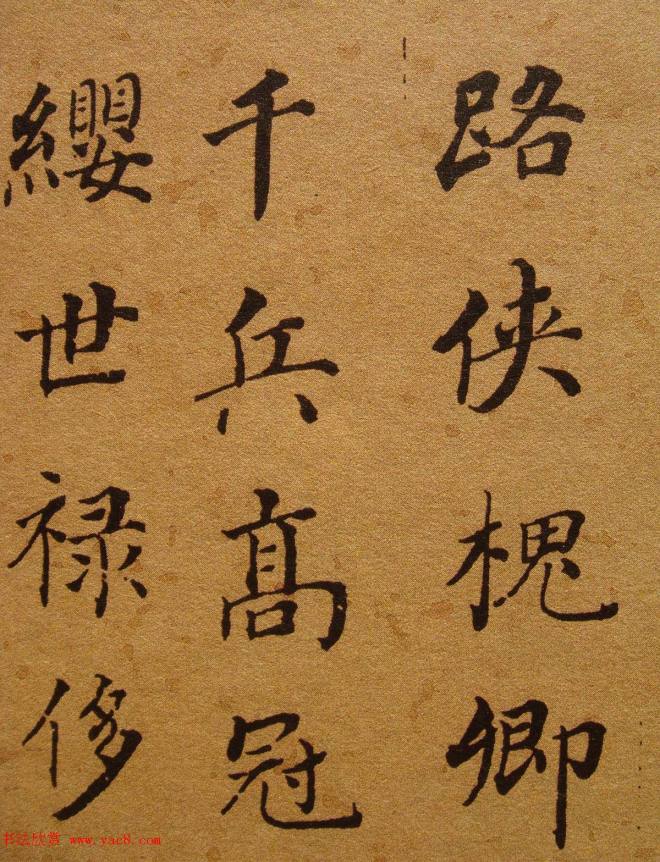 路侠槐卿
千兵髙冠
纓世禄侈
书法欣赏 www.yac8.com